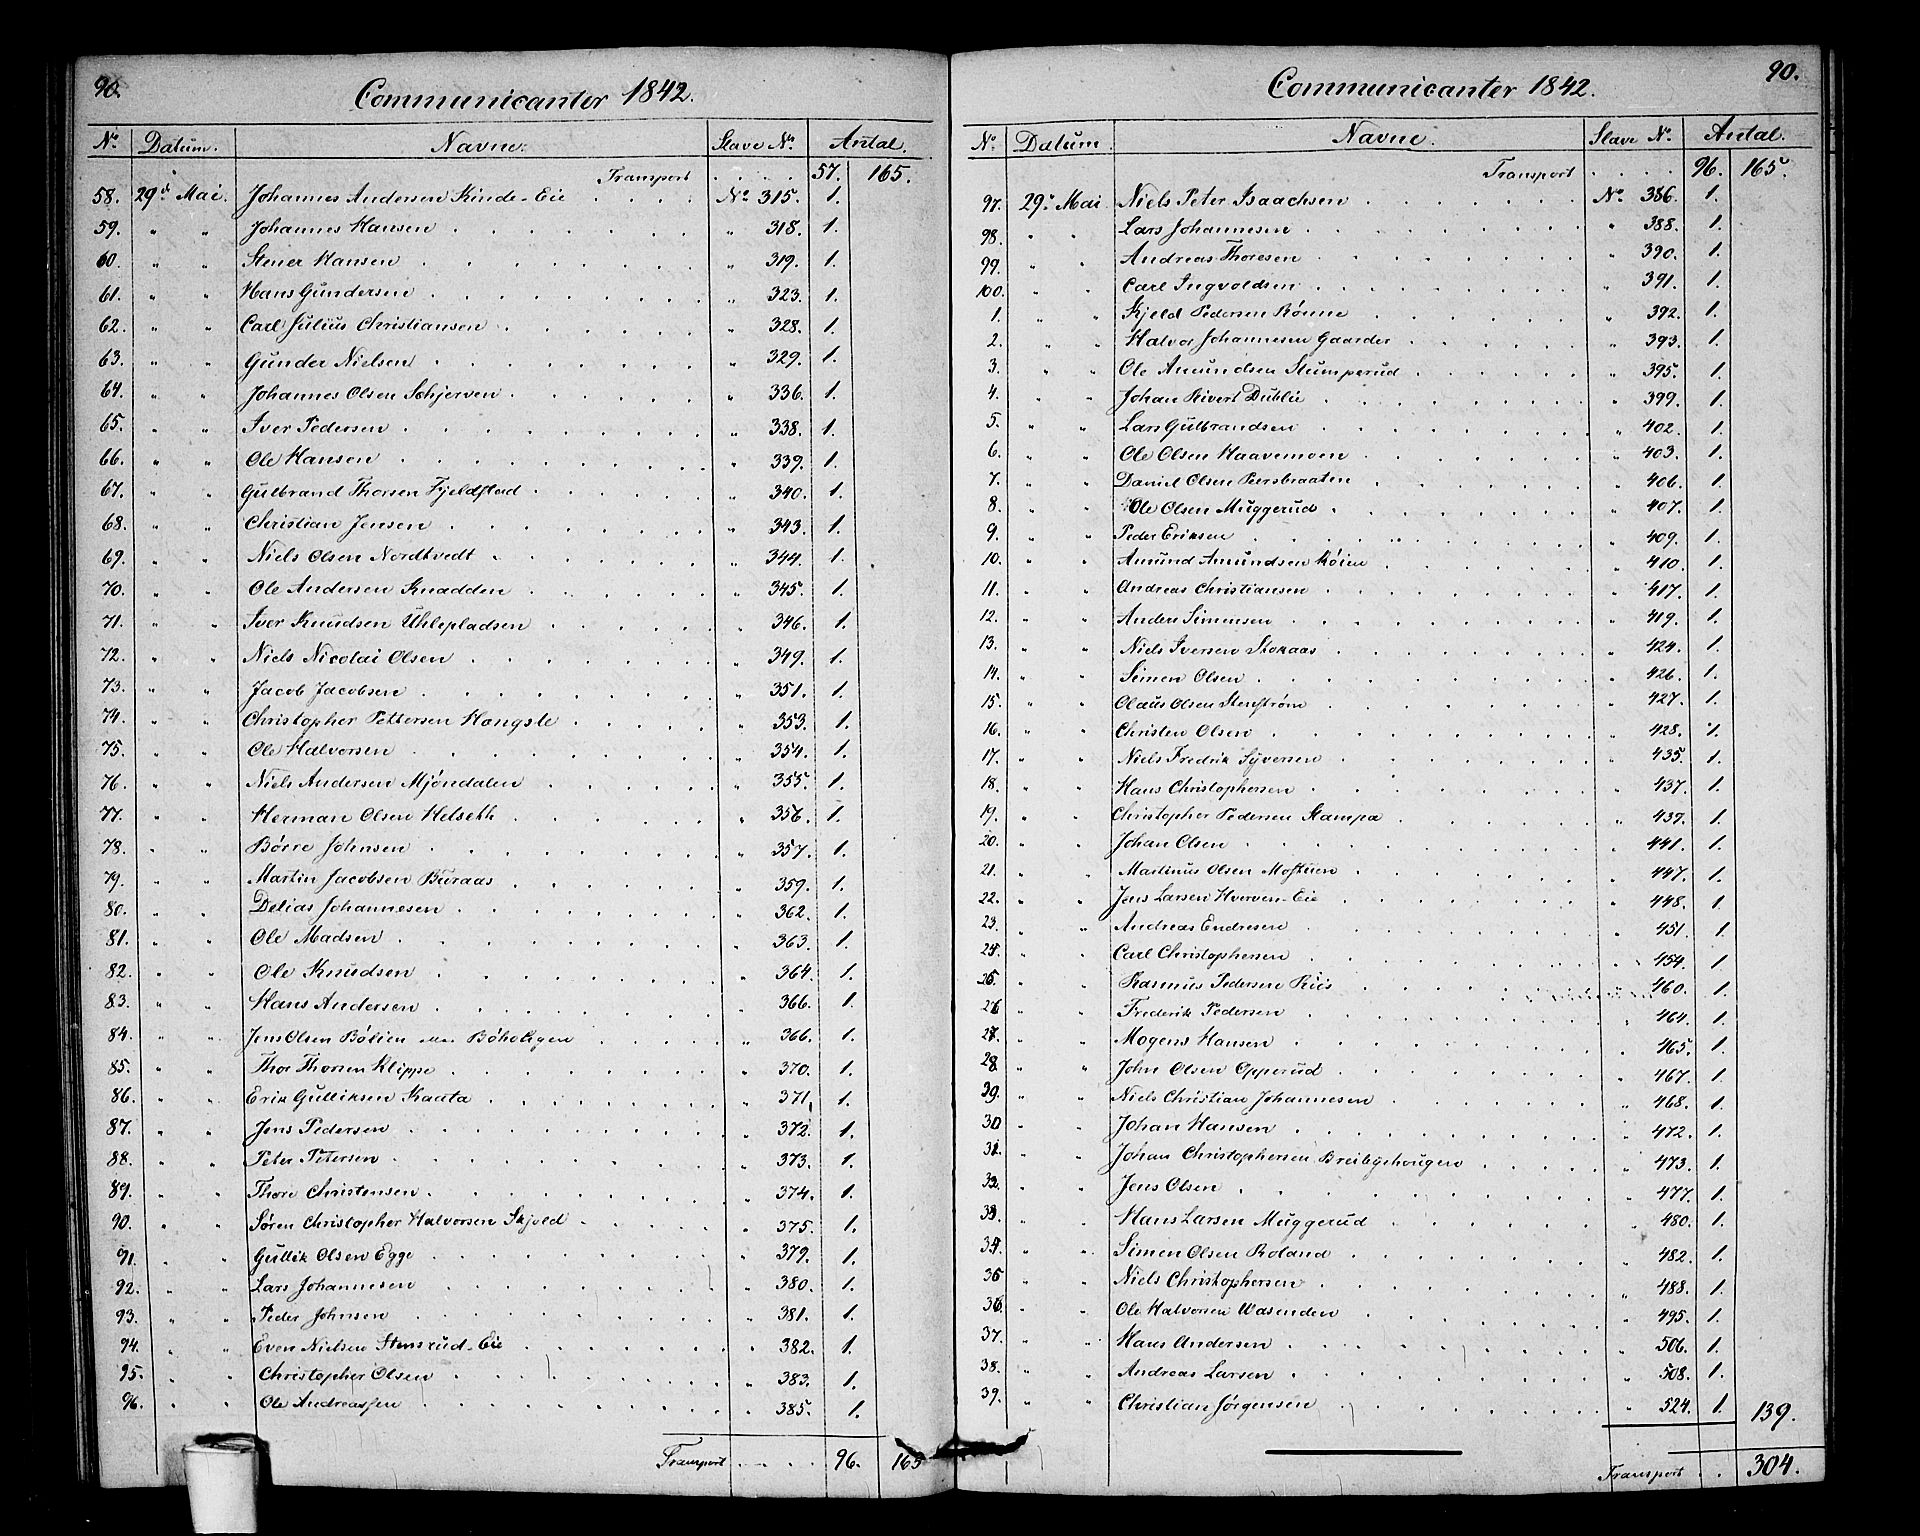 90.
Communicanter 1842.
No. Datum. Navne. Slave No. Antal.
Transport . . . . 57. 165.
58. 29de Mai. Johannes Andersen Kinde-Eie . . . . No. 315. 1.
59. " " Johannes Hansen . . . . " 318. 1.
60. " " Stener Hansen . . . . " 319. 1.
61. " " Hans Gundersen . . . . " 323. 1.
62. " " Carl Julius Christiansen . . . . " 328. 1.
63. " " Gunder Nielsen . . . . " 329. 1.
64. " " Johannes Olsen Schjerven . . . . " 336. 1.
65. " " Iver Pedersen . . . . " 338. 1.
66. " " Ole Hansen . . . . " 339. 1.
67. " " Gulbrand Thorsen Fjeldstad . . . . " 340. 1.
68. " " Christian Jensen . . . . " 343. 1.
69. " " Niels Olsen Nordtvedt . . . . " 344. 1.
70. " " Ole Andersen Knadden . . . . " 345. 1.
71. " " Iver Knudsen Uhlepladsen . . . . " 346. 1.
72. " " Niels Nicolai Olsen . . . . " 349. 1.
73. " " Jacob Jacobsen . . . . " 351. 1.
74. " " Christopher Pettersen Hongsle . . . . " 353. 1.
75. " " Ole Halvorsen . . . . " 354. 1.
76. " " Niels Andersen Mjøndalen . . . . " 355. 1.
77. " " Herman Olsen Helseth . . . . " 356. 1.
78. " " Børre Johnsen . . . . " 357. 1.
79. " " Martin Jacobsen Buraas . . . . " 359. 1.
80. " " Delias Johannesen . . . . " 362. 1.
81. " " Ole Madsen . . . . " 363. 1.
82. " " Ole Knudsen . . . . " 364. 1.
83. " " Hans Andersen . . . . " 366. 1.
84. " " Jens Olsen Bølien Bøhaugen . . . . " 366. 1.
85. " " Thor Thorsen Klippe . . . . " 370. 1.
86. " " Erik Gulliksen Kaata . . . . " 371. 1.
87. " " Jens Pedersen . . . . " 372. 1.
88. " " Peter Petersen . . . . " 373. 1.
89. " " Thore Christensen . . . . " 374. 1.
90. " " Søren Christopher Halvorsen Skjold . . . . " 375. 1.
91. " " Gullik Olsen Egge . . . . " 379. 1.
92. " " Lars Johannesen . . . . " 380. 1.
93. " " Peder Johnsen . . . . " 381. 1.
94. " " Even Nielsen Stensrud-Eie . . . . " 382. 1.
95. " " Christopher Olsen . . . . " 383. 1.
96. " " Ole Andreassen . . . . " 385. 1.
Transport . . . . 96. 165
90.
Communicanter 1842.
No. Datum. Navne. Slave No. Antal.
Transport . . . . 96. 165.
97. 29de Mai Niels Peter Isaachsen . . . . No. 386. 1.
98. " " Lars Johannesen . . . . " 388. 1.
99. " " Andreas Thoresen . . . . " 390. 1.
100. " " Carl Ingvoldsen . . . . " 391. 1.
1. " " Kjeld Pedersen Rønne . . . . " 392. 1.
2. " " Halvor Johannesen Gaarder . . . . " 393. 1.
3. " " Ole Amundsen Stumperud . . . . " 395. 1.
4. " " Johan Sivert Duhlie . . . . " 399. 1.
5. " " Lars Gulbrandsen . . . . " 402. 1.
6. " " Ole Olsen Haavemoen . . . . " 403. 1.
7. " " Daniel Olsen Persbraaten . . . . " 406. 1.
8. " " Ole Olsen Muggerud . . . . " 407. 1.
9. " " Peder Eriksen . . . . " 409. 1.
10. " " Amund Amundsen Køien . . . . " 410. 1.
11. " " Andreas Christiansen . . . . " 417. 1.
12. " " Anders Simensen . . . . " 419. 1.
13. " " Niels Iversen Stokaas . . . . " 424. 1.
14. " " Simen Olsen . . . . " 426. 1.
15. " " Claus Olsen Stenstrøm . . . . " 427. 1.
16. " " Christen Olsen . . . . " 428. 1.
17. " " Niels Fredrik Syversen . . . . " 435. 1.
18. " " Hans Christophersen . . . . " 437. 1.
19. " " Christopher Pedersen Stampe . . . . " 439. 1.
20. " " Johan Olsen . . . . " 441. 1.
21. " " Martinus Olsen Mostuen . . . . " 447. 1.
22. " " Jens Larsen Hverven-Eie . . . . " 448. 1.
23. " " Andreas Endresen . . . . " 451. 1.
25. " " Carl Christophersen . . . . " 454. 1.
25. " " Rasmus Pedersen Riis . . . . " 460. 1.
26. " " Frederik Pedersen . . . . " 464. 1.
27. " " Mogens Hansen . . . . " 465. 1.
28. " " John Olsen Opperud . . . . " 467. 1.
29. " " Niels Christian Johannesen . . . . " 468. 1.
30. " " Johan Hansen . . . . " 472. 1.
31. " " Johan Christophersen Breibyehougen . . . . " 473. 1.
32. " " Jens Olsen . . . . " 477. 1.
33. " " Hans Larsen Muggerud . . . . " 480. 1.
34. " " Simen Olsen Roland . . . . " 482. 1.
35. " " Niels Christophersen . . . . " 488. 1.
36. " " Ole Halvorsen Wasenden . . . . " 495. 1.
37. " " Hans Andersen . . . . " 506. 1.
38. " " Andreas Larsen . . . . " 508. 1.
39. " " Christian Jørgensen . . . . " 524. 1. 139.
Transport . . 304.